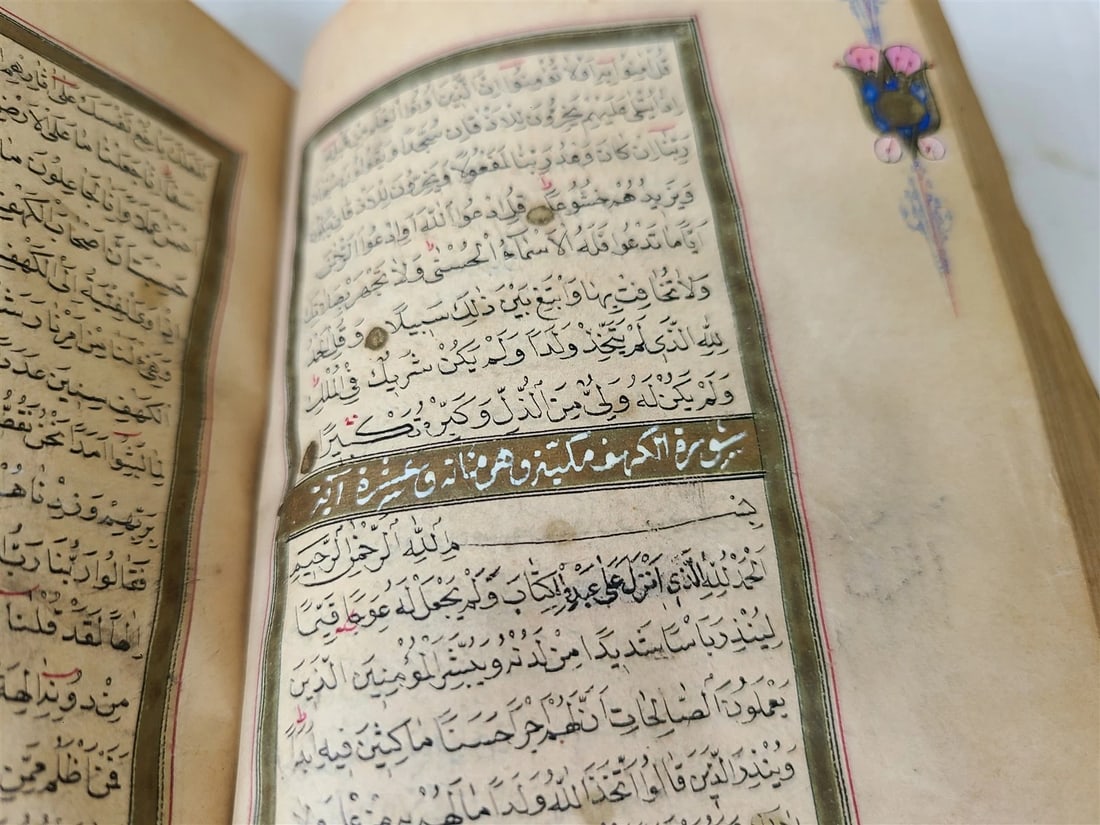 قُلْ اٰمِنُوا بِهِ اَوْلَا تُؤْمِنُوا اِنَّ الَّذِينَ اُوتُوا الْعِلْمَ مِنْ قَبْلِهِ
اِذَا يُتْلٰى عَلَيْهِمْ يَخِرُّونَ لِلْاَذْقَانِ سُجَّدًا وَيَقُولُونَ سُبْحَانَ
رَبِّنَا اِنْ كَانَ وَعْدُ رَبِّنَا لَمَفْعُولًا وَيَخِرُّونَ لِلْاَذْقَانِ يَبْكُونَ
وَيَزِيدُهُمْ خُشُوعًا قُلِ ادْعُوا اللّٰهَ اَوِ ادْعُوا الرَّحْمٰنَ
اَيًّا مَا تَدْعُوا فَلَهُ الْاَسْمَاءُ الْحُسْنٰى وَلَا تَجْهَرْ بِصَلَاتِكَ
وَلَا تُخَافِتْ بِهَا وَابْتَغِ بَيْنَ ذٰلِكَ سَبِيلًا وَقُلِ الْحَمْدُ
لِلّٰهِ الَّذِى لَمْ يَتَّخِذْ وَلَدًا وَلَمْ يَكُنْ شَرِيكٌ فِى الْمُلْكِ
وَلَمْ يَكُنْ لَهُ وَلِىٌّ مِنَ الذُّلِّ وَكَبِّرْهُ تَكْبِيرًا
سورة الكهف مكية وهي مائة وعشرة آية
بِسْمِ اللّٰهِ الرَّحْمٰنِ الرَّحِيمِ
اَلْحَمْدُ لِلّٰهِ الَّذِى اَنْزَلَ عَلٰى عَبْدِهِ الْكِتَابَ وَلَمْ يَجْعَلْ لَهُ عِوَجًا قَيِّمًا
لِيُنْذِرَ بَأْسًا شَدِيدًا مِنْ لَدُنْهُ وَيُبَشِّرَ الْمُؤْمِنِينَ الَّذِينَ
يَعْمَلُونَ الصَّالِحَاتِ اَنَّ لَهُمْ اَجْرًا حَسَنًا مَاكِثِينَ فِيهِ اَبَدًا
وَيُنْذِرَ الَّذِينَ قَالُوا اتَّخَذَ اللّٰهُ وَلَدًا مَا لَهُمْ بِهِ مِنْ عِلْمٍ وَلَا
فَلَعَلَّكَ بَاخِعٌ نَفْسَكَ عَلٰى اٰثَارِهِمْ
اِنَّا جَعَلْنَا مَا عَلَى الْاَرْضِ
اَحْسَنُ عَمَلًا وَاِنَّا لَجَاعِلُونَ مَا
حَسِبْتَ اَنَّ اَصْحَابَ الْكَهْفِ
اِذْ اَوَى الْفِتْيَةُ اِلَى الْكَهْفِ
وَهَيِّئْ لَنَا مِنْ اَمْرِنَا رَشَدًا
الْكَهْفِ سِنِينَ عَدَدًا
لِمَا لَبِثُوا اَمَدًا نَحْنُ نَقُصُّ
بِرَبِّهِمْ وَزِدْنَاهُمْ
فَقَالُوا رَبُّنَا رَبُّ
اِلٰهًا لَقَدْ قُلْنَا
مِنْ دُونِهِ اٰلِهَةً
فَمَنْ اَظْلَمُ مِمَّنِ